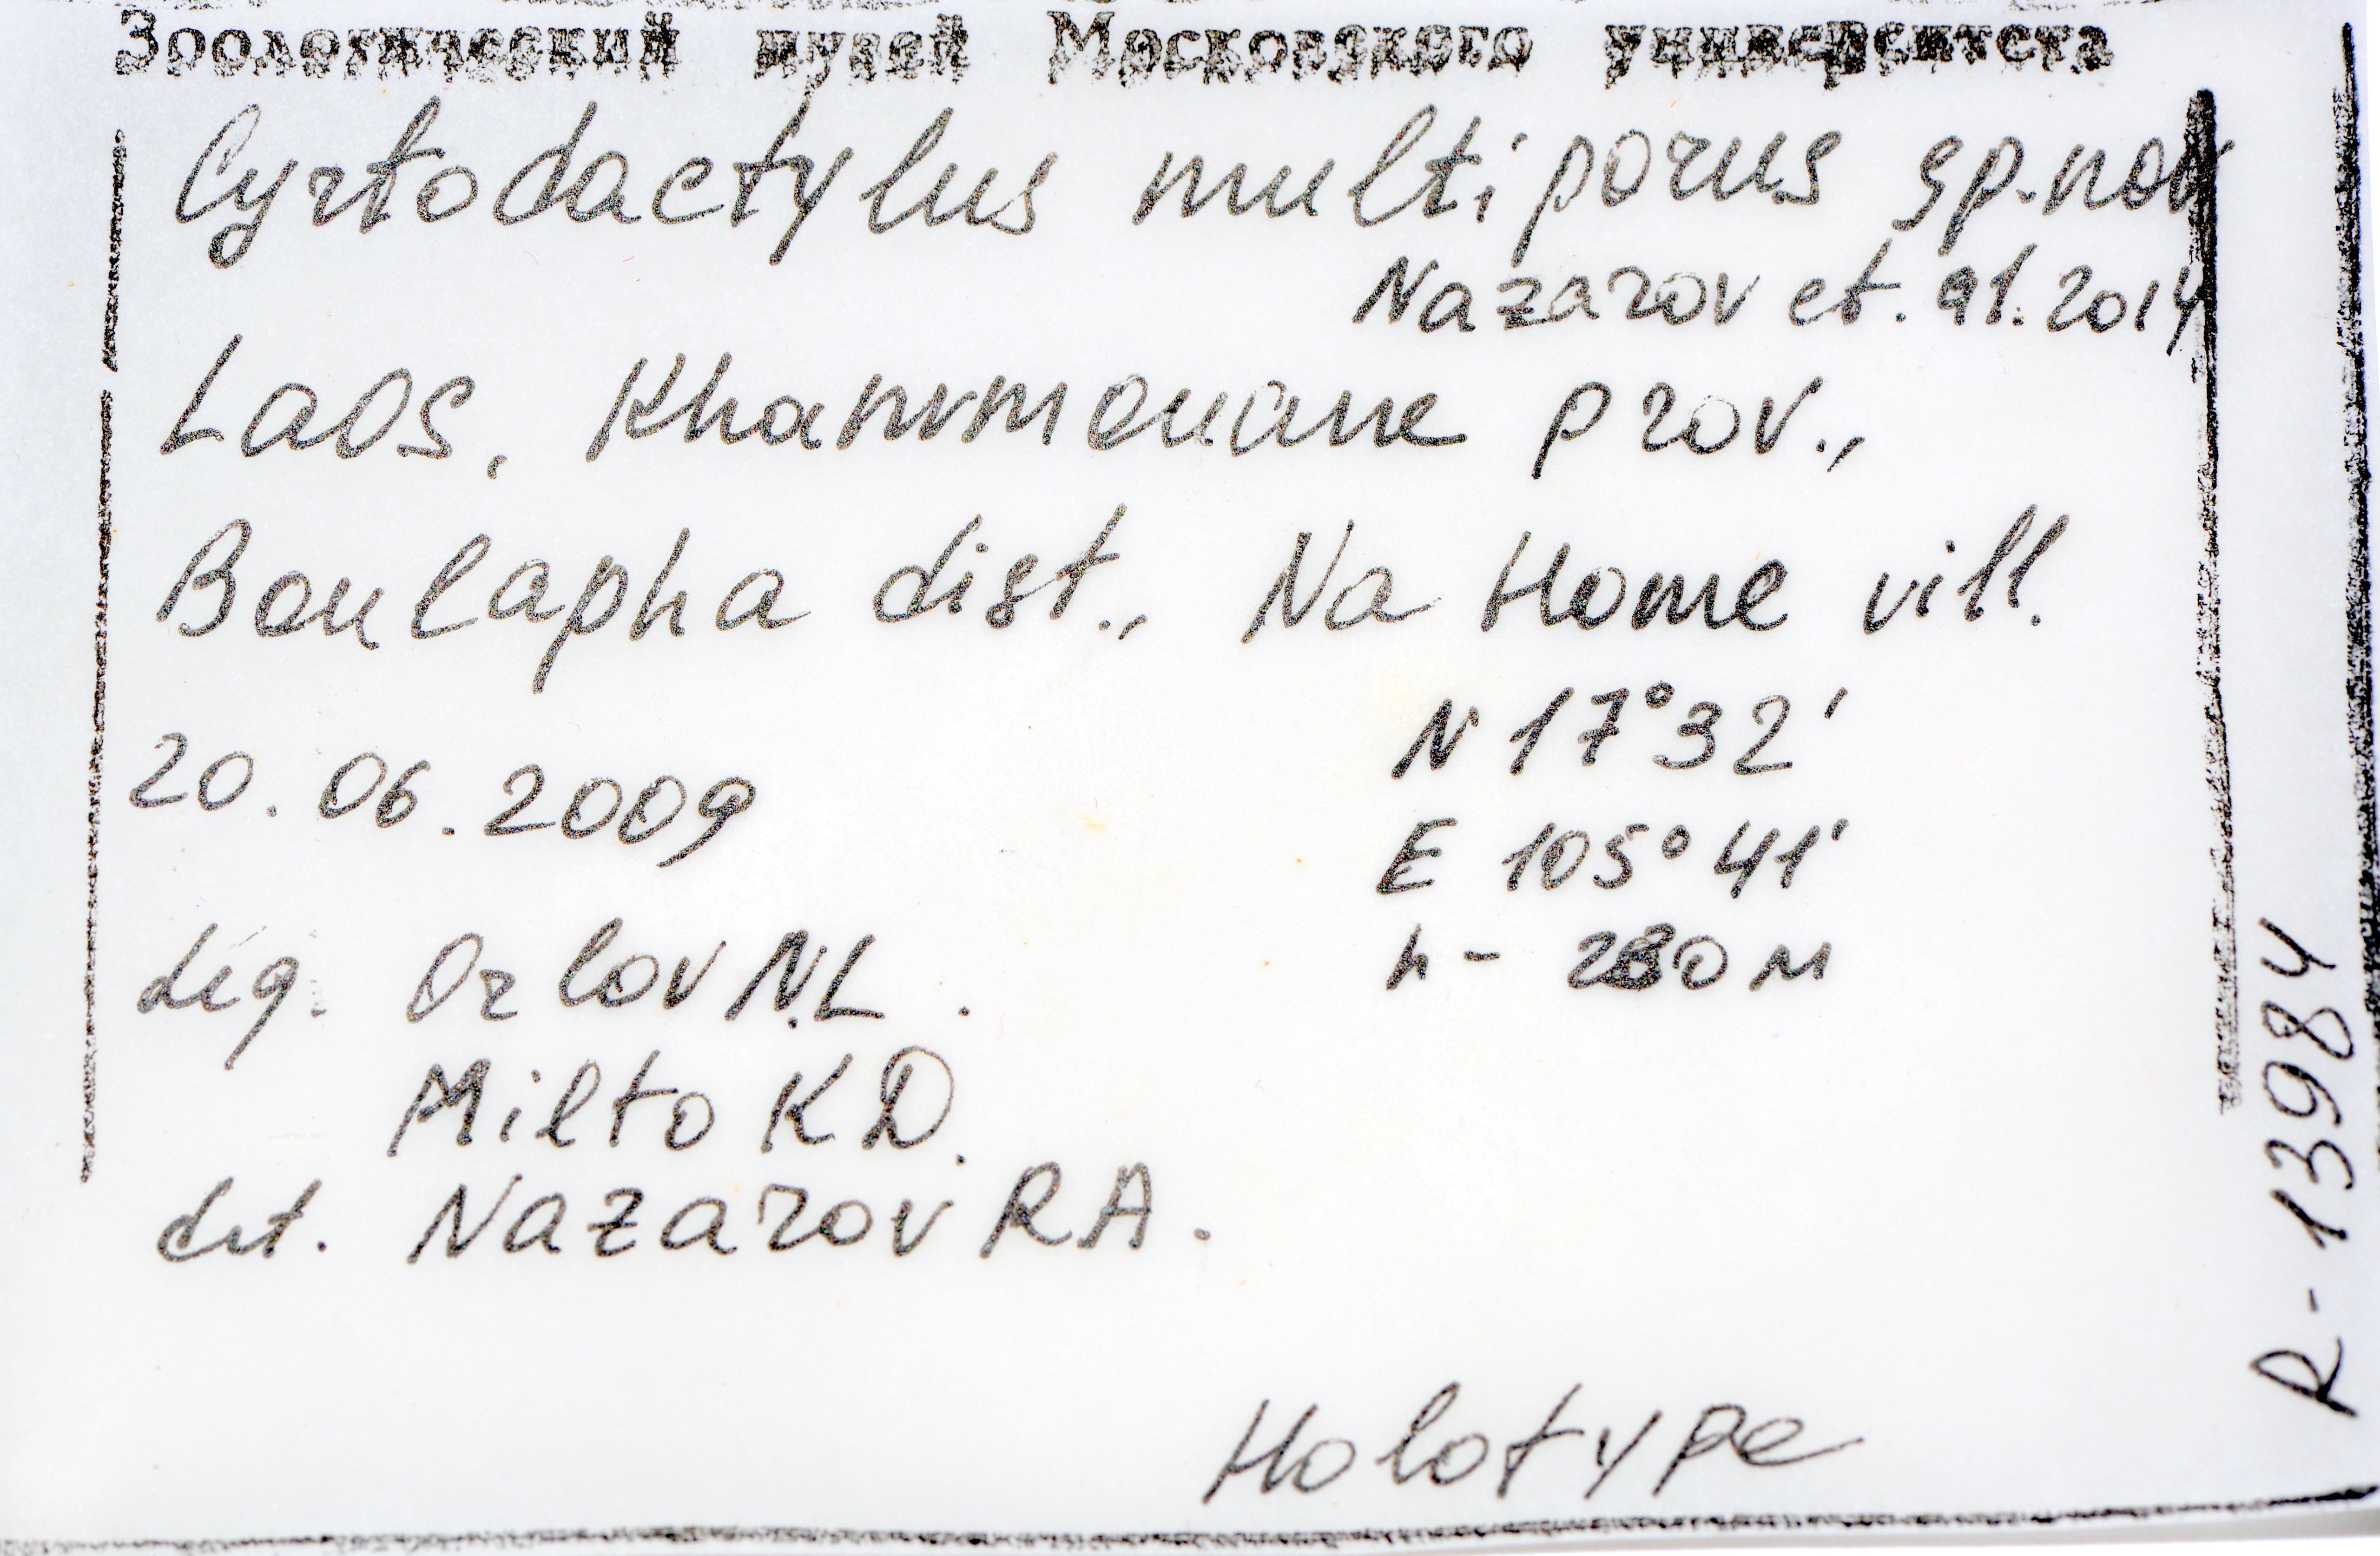 Зоологический музей Московского университета
Cyrtodactylus multiporus sp.nov
Nazarov et. al. 2014
Laos, Khammouane prov.,
Boulapha dist., Na Home vill.
N 17°32'
20.06.2009
E 105°41'
leg. Orlov N.L.
h - 280 м
Milto K D.
det. Nazarov R A.
Holotype
R-13984